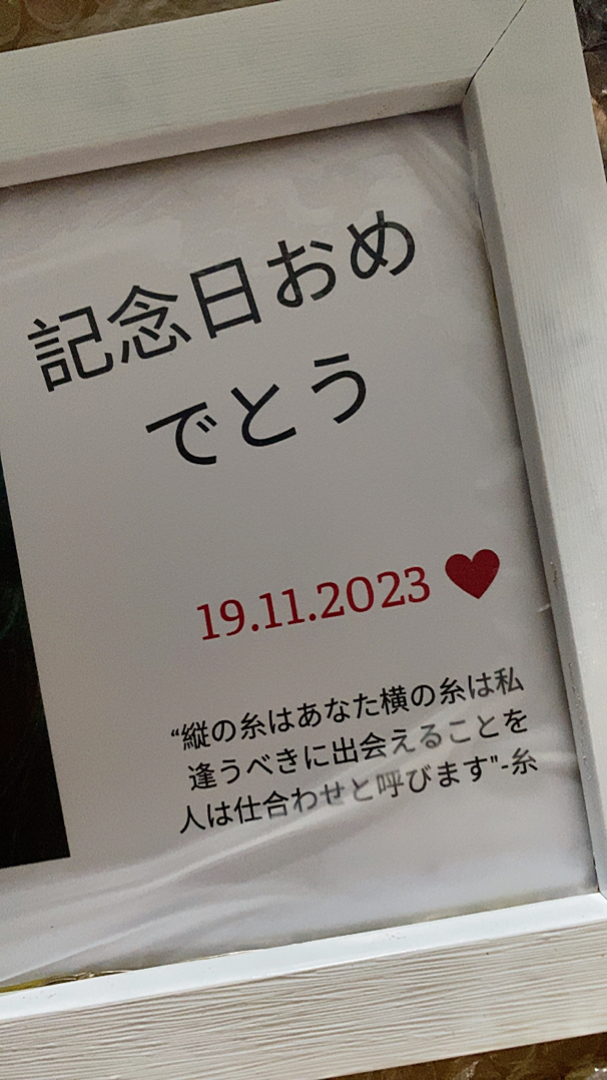 記念日おめ
でとう
19.11.2023
“縦の糸はあなた横の糸は私
逢うべきに出会えることを
人は仕合わせと呼びます"-糸